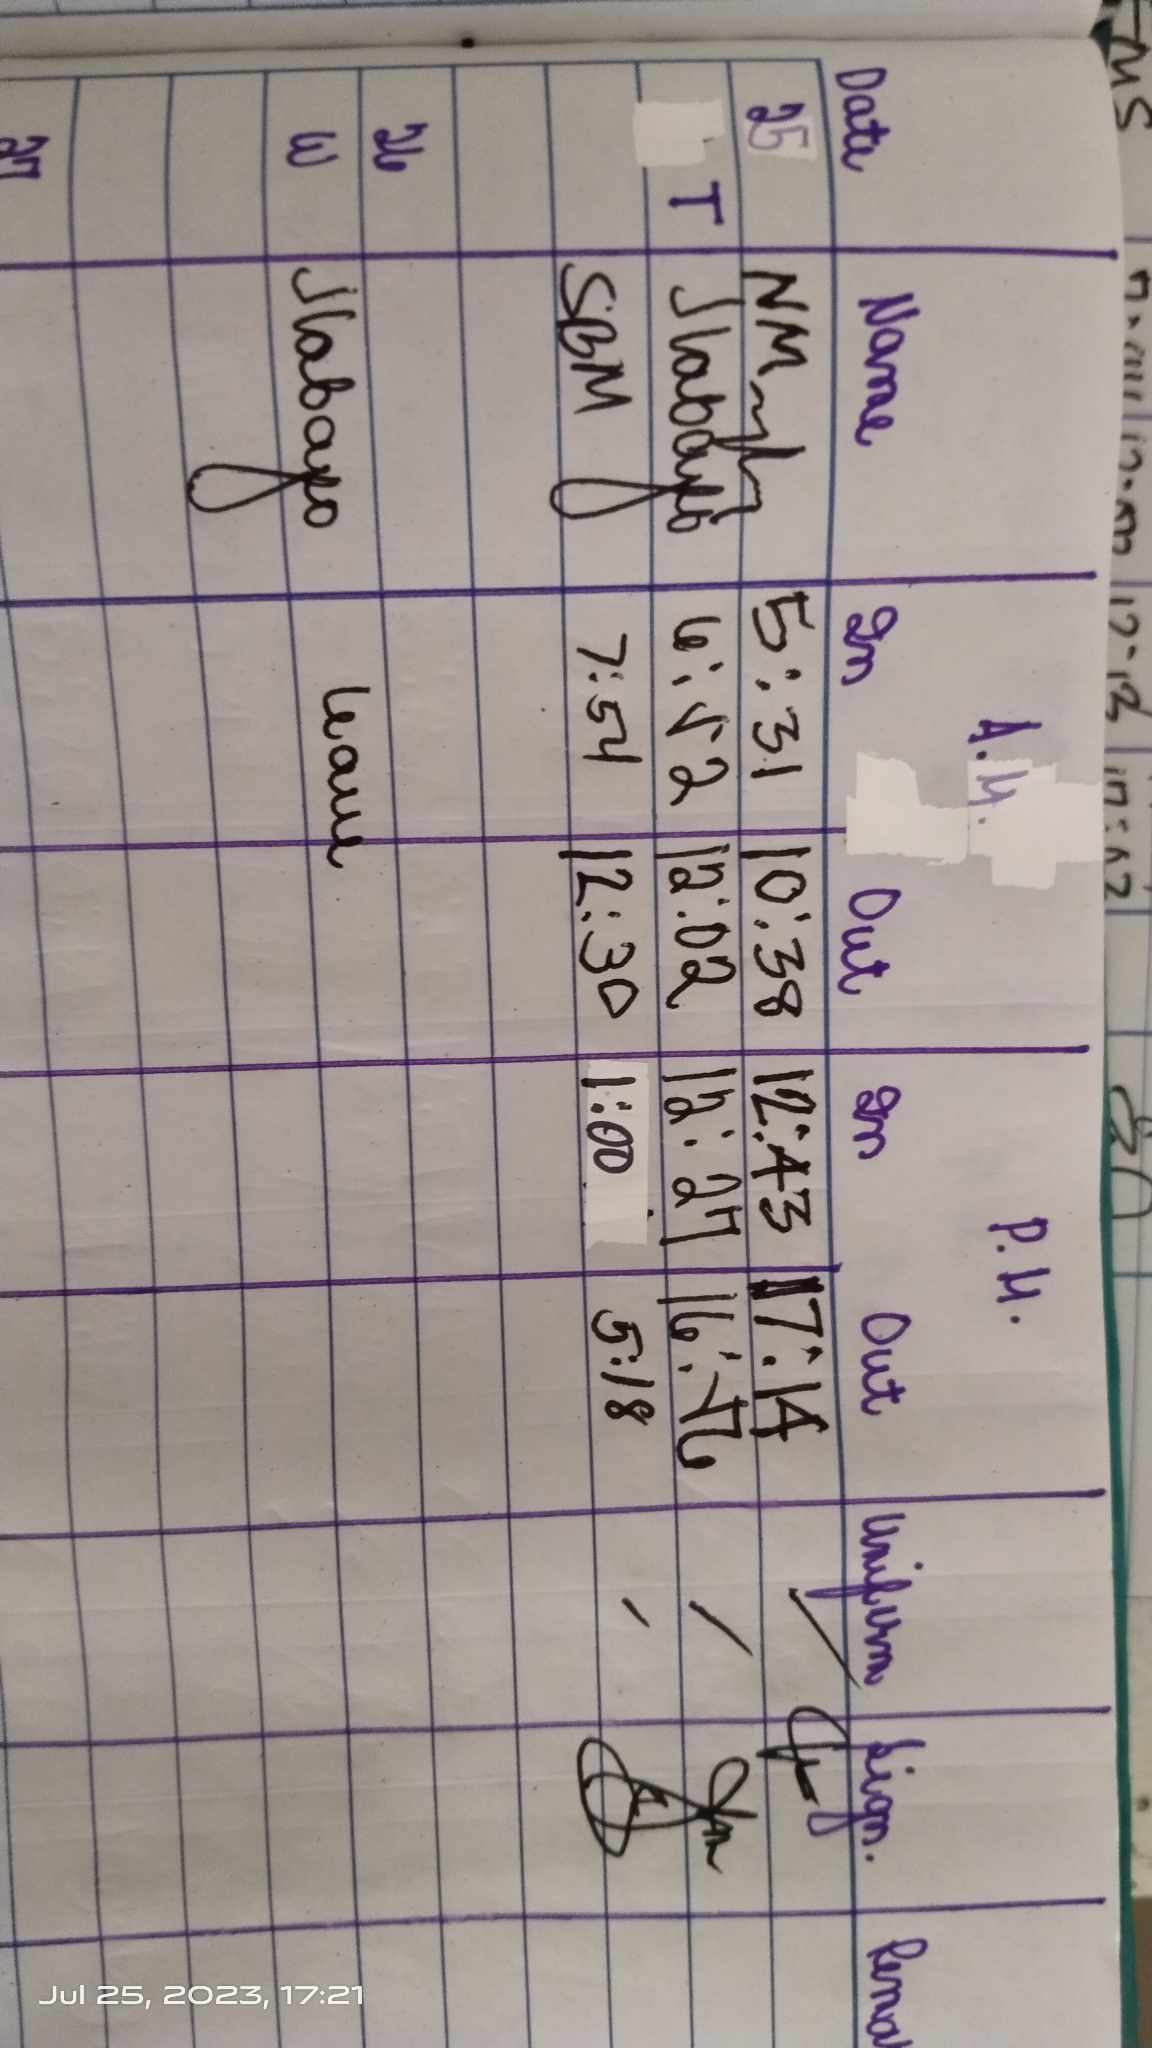 A.M. P.M.
Date Name In Out In Out Uniform Sign.
25 NM 5:31 10:38 12:43 17:14
T Jlabayo 6:52 12:02 12:27 16:56
SBM 7:54 12:30 1:00 5:18
26
W Jlabayo leave
27
Jul 25, 2023, 17:21